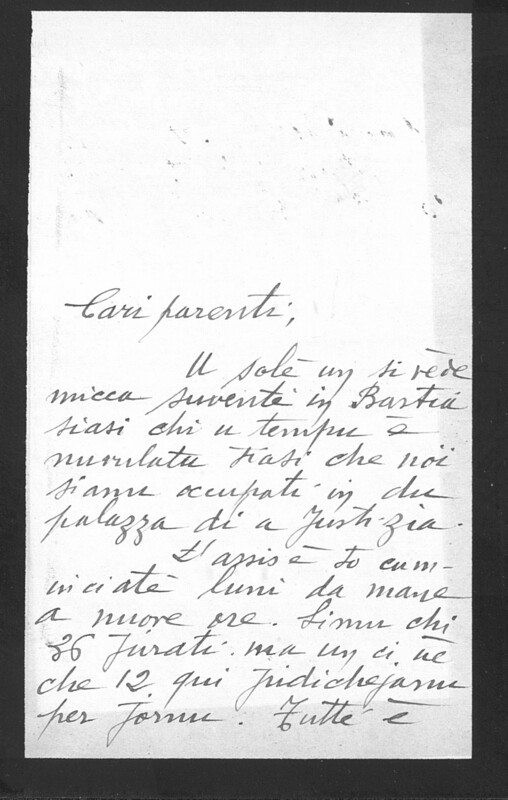 Cari parenti,
U solè un si vède
micca suventè in Bastia
siasi chi u tempu è
nuvulatu siasi che noi
siamu occupati in du
palazza di a Justizia.
L'assisè so cum-
inciatè luni da mane
a nuove ore. Simu chi
36 Jurati. ma un ci nè
che 12 qui judichejanu
per Jornu. Tuttè è